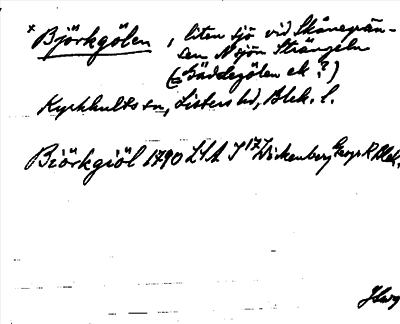 * Björkgölen, liten sjö vid Skånegrän-
sen N sjön Strängeln
(= Gäddegölen ek?)
Kyrkhults sn, Listers hd, Blek. l.
Biörkgiöl 1790 LSA I 17 Wickenberg Geogr K Blek.